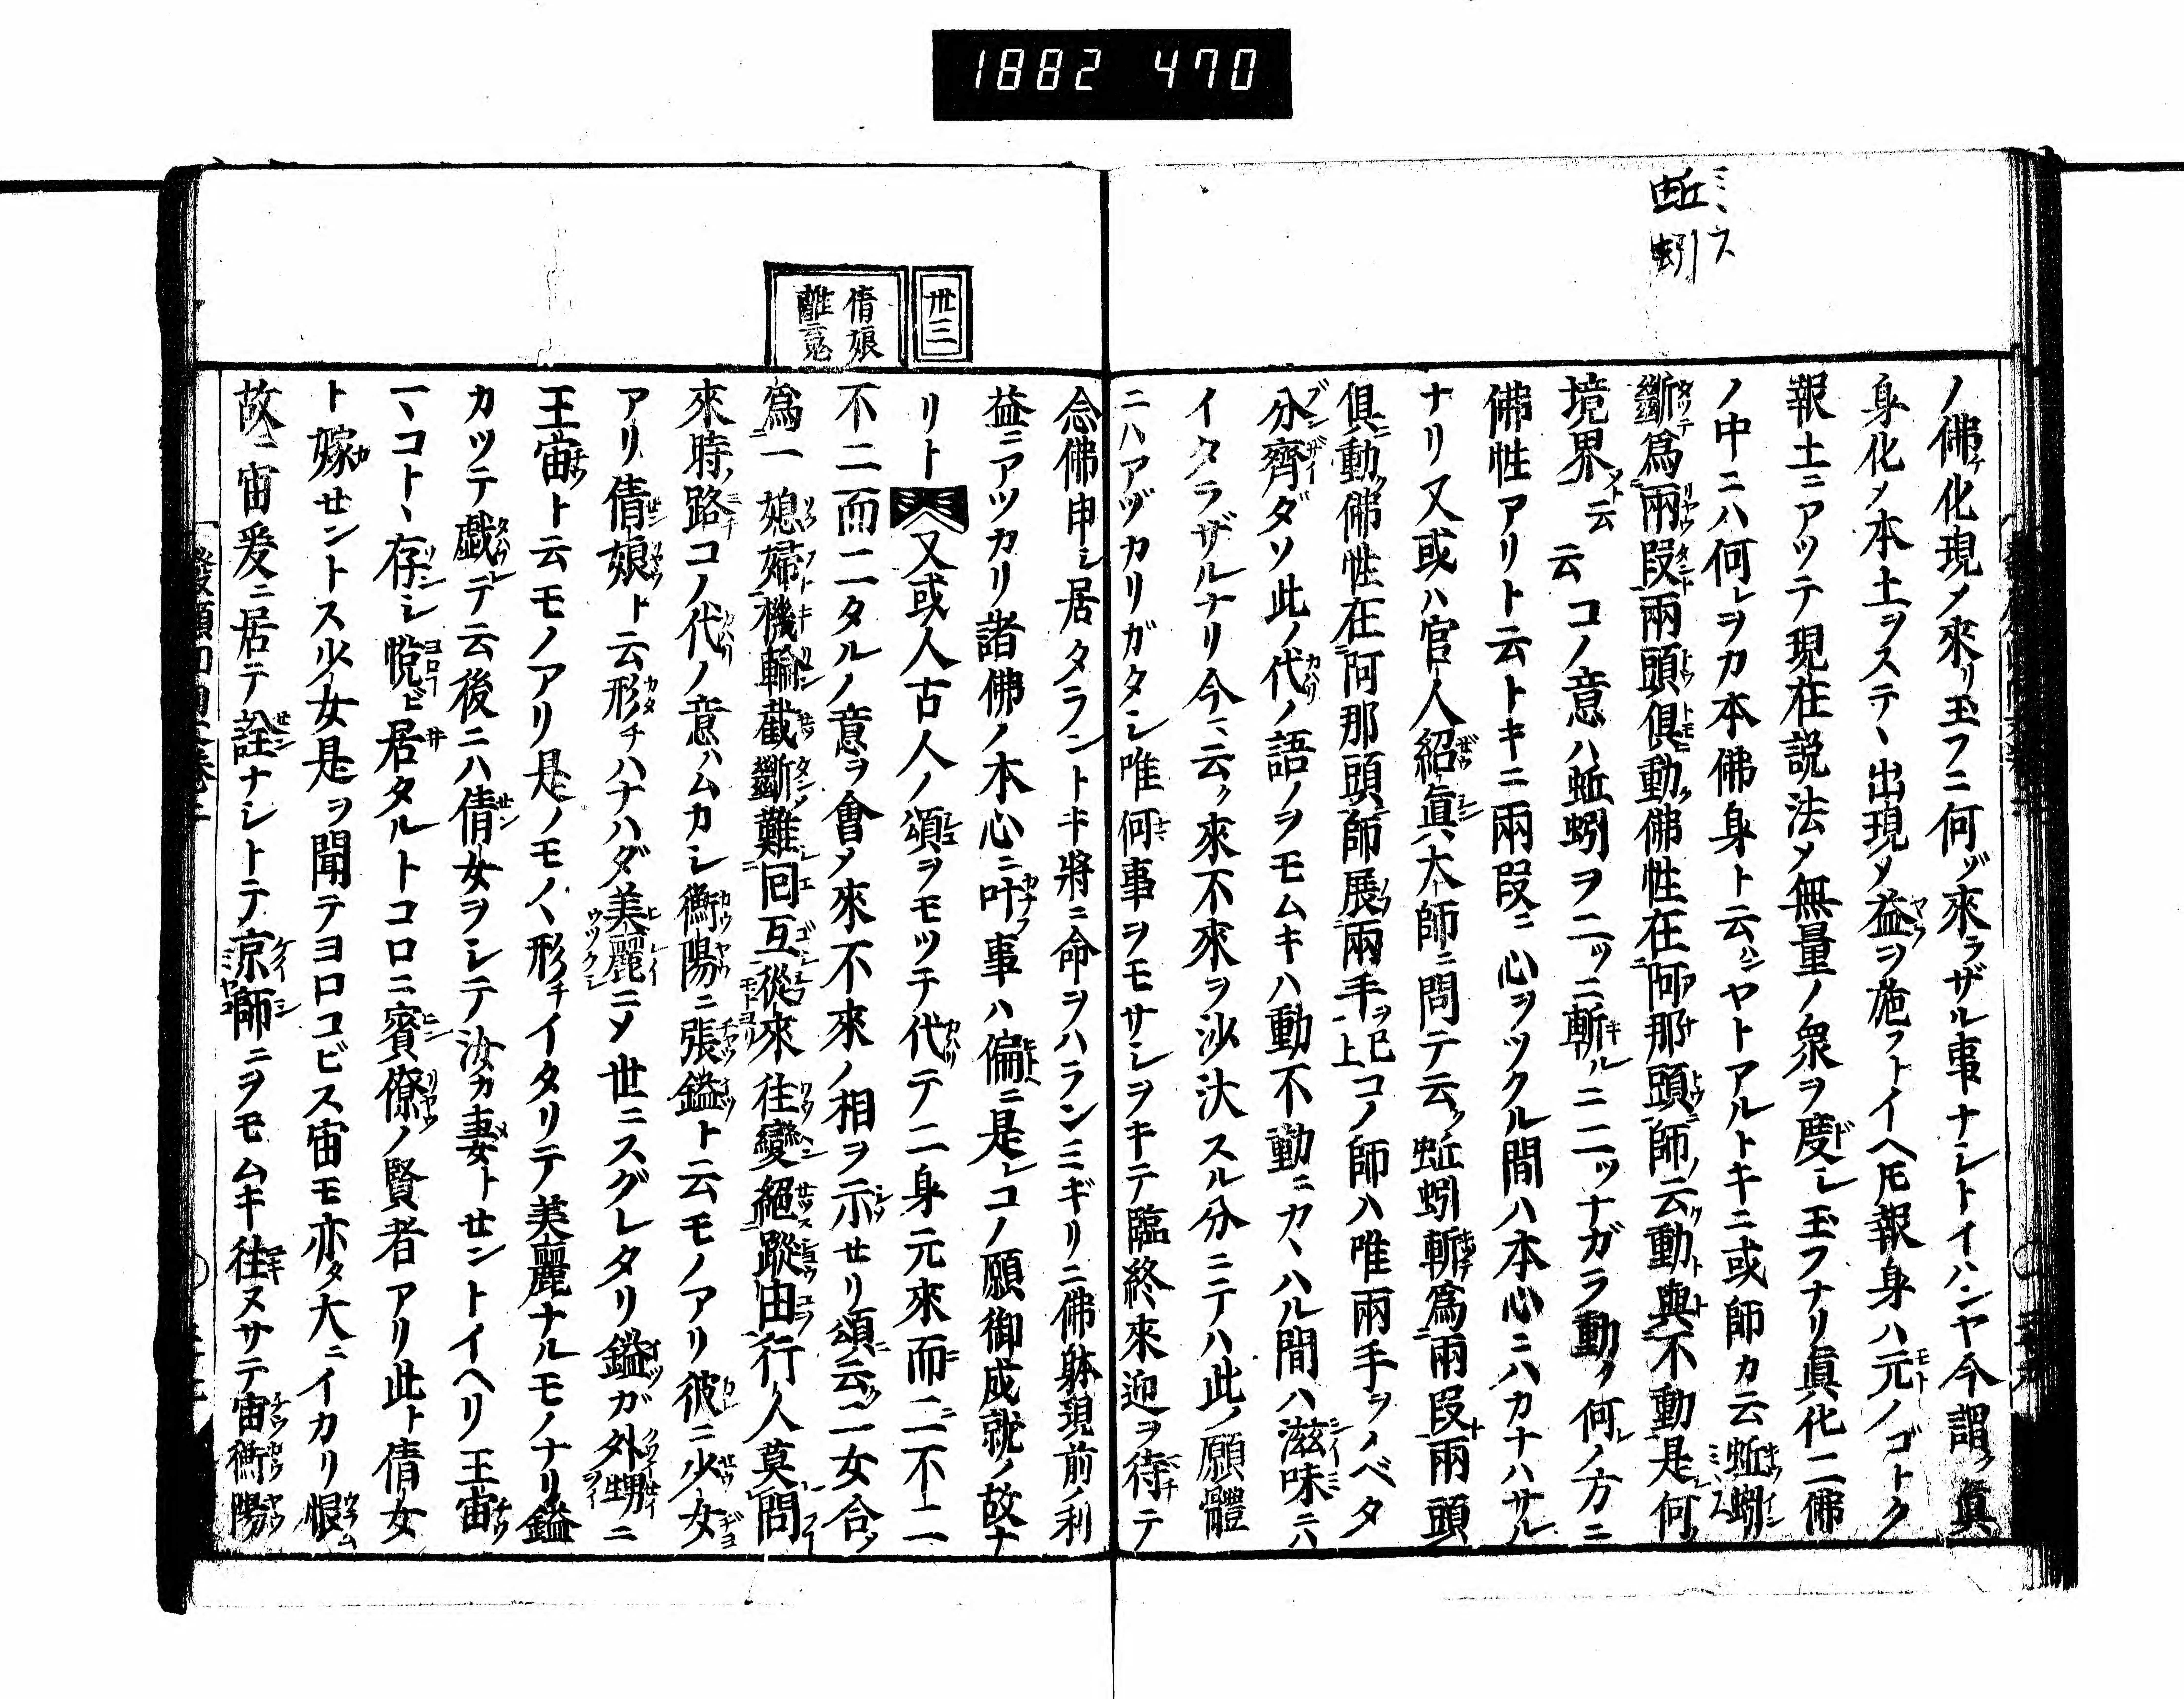 1882 470
蚯蚓 ミミス
ノ佛ケ化現ノ來リ玉フニ何ゾ來ラザル事ナシトイハンヤ今謂ク眞
身化ノ本土ヲステヽ出現メ益ヲ施フトイヘ𪜈報身ハ元ノゴトク
報土ニアツテ現在説法メ無量ノ衆ヲ度シ玉フナリ眞化二佛
ノ中ニハ何レヲカ本佛身ト云ハンヤトアルトキニ或師カ云蚯蚓
斷爲兩段兩頭倶動佛性在阿那頭師云動與不動是何
境界ト云云コノ意ハ蚯蚓ヲ二ツニ斬ルニ二ツナガラ動ク何レノ方ニ
佛性アリト云トキニ兩段ニ心ヲツクル間ハ本心ニハカナハサル
ナリ又或ハ官人紹眞大師ニ問テ云ク蚯蚓斬爲兩段兩頭
倶動佛性在阿那頭師展兩手ヲ已上コノ師ハ唯兩手ヲノベタ
分齊ダソ此ノ代ノ語ノヲモムキハ動不動ニカヽハル間ハ滋味ニハ
イタラザルナリ今云ク來不來ヲ沙汰スル分ニテハ此ノ願體
ニハアヅカリガタシ唯何事ヲモサシヲキテ臨終來迎ヲ待テ
念佛申シ居タラントキ將ニ命ヲハランミギリニ佛躰現前ノ利
益ニアツカリ諸佛ノ本心ニ叶フ事ハ偏ニ是レコノ願御成就ノ故ナ
リト又或人古人ノ頌ヲモツテ代テ二身元來而二不二
不二而二タルノ意ヲ會メ來不來ノ相ヲ示セリ頌云ク二女合
爲一媳婦機輪截斷難回互從來往變絕蹤由行人莫問
來時路コノ代ノ意ハムカシ衡陽ニ張鎰ト云モノアリ彼ニ少女
アリ倩娘ト云形チハナハダ美麗ニメ世ニスグレタリ鎰ガ外甥ニ
王宙ト云モノアリ是ノモノヽ形チイタリテ美麗ナルモノナリ鎰
カツテ戯テ云後ニハ倩女ヲシテ汝カ妻トセントイヘリ王宙
一ヽコトヽ存シ悅ビ居タルトコロニ賓僚ノ賢者アリ此ト倩女
ト嫁セントス少女是ヲ聞テヨロコビス宙モ亦タ大ニイカリ恨
故ニ宙爰ニ居テ詮ナシトテ京師ニヲモムキ往ヌサテ宙衡陽
丗三
倩娘
離魂